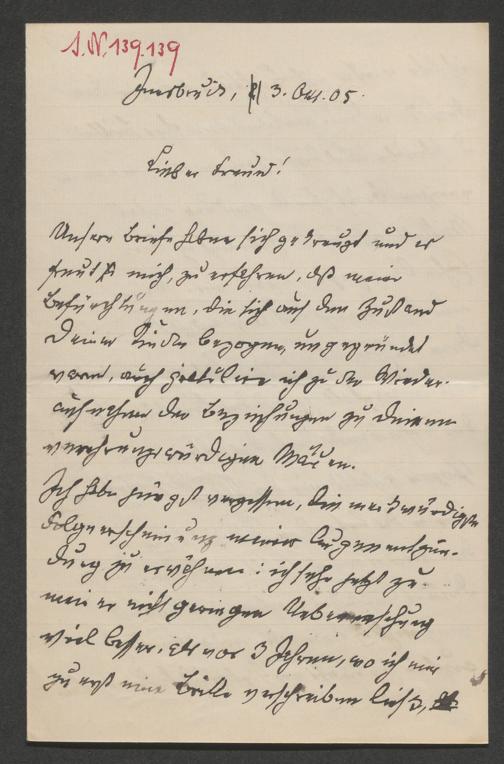 I.N. 139.139
Innsbruck, 3. Okt. 05.
Lieber Freund!
Unsere Briefe haben sich gekreuzt und es
freut mich, zu erfahren, daß meine
Befürchtungen, die sich auf den Zustand
Deiner Kinder bezogen, ungegründet
waren, auch gratuliere ich zu der Wieder-
aufnahme der Beziehungen zu Deinem
verehrungswürdigen
Ich habe jüngst vergessen, die merkwürdigste
Folgeerscheinung meiner Augenentzün-
dung zu erwähnen: ich sehe jetzt zu
meiner nicht geringen Ueberraschung
viel besser, als vor 3 Jahren, wo ich mir
zuerst eine Brille verschreiben ließ,